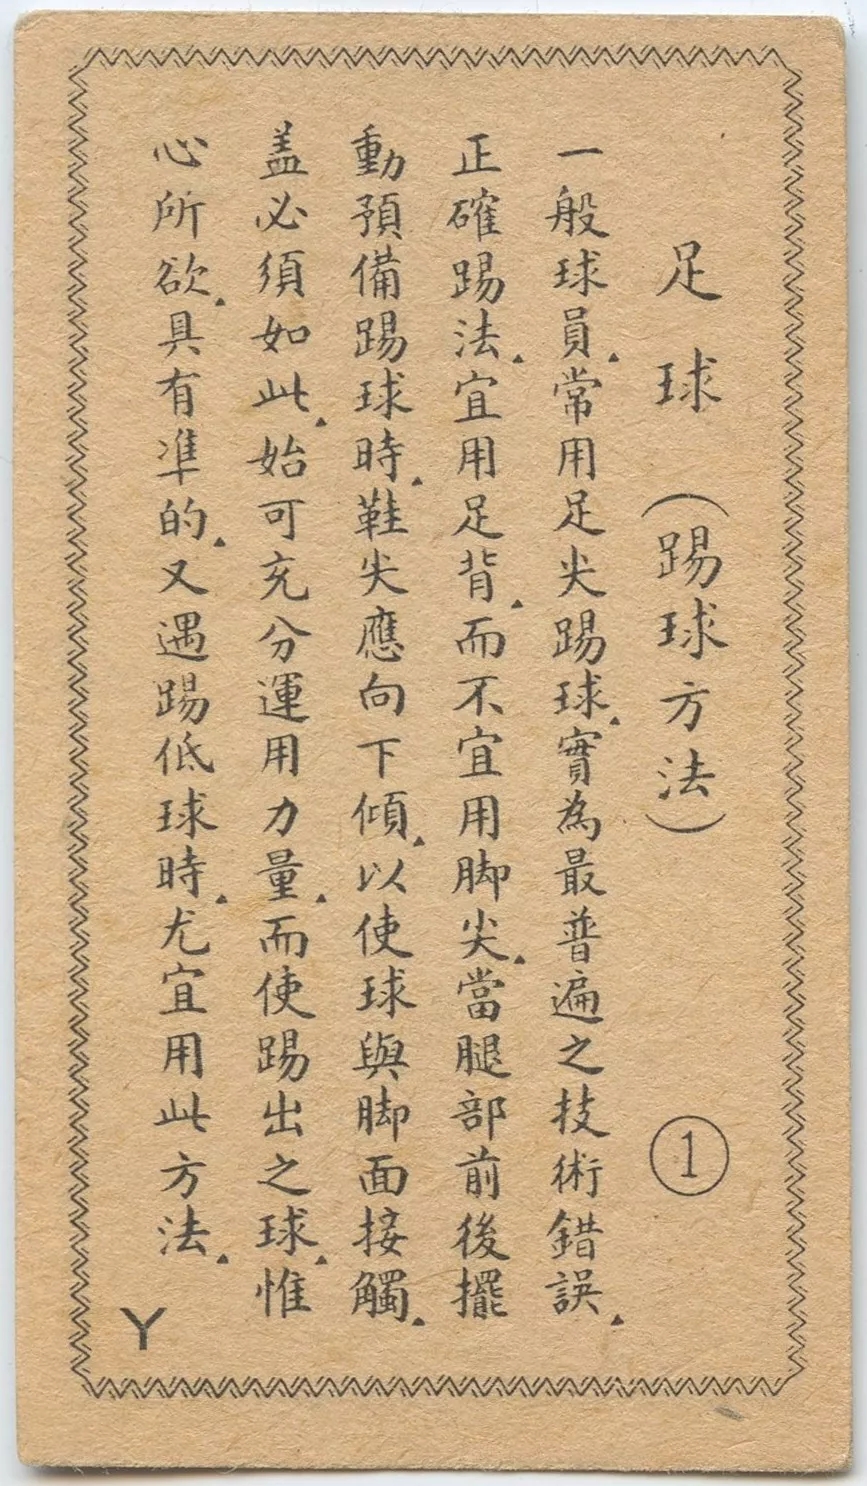 足球（踢球方法） ①
一般球員▲常用足尖踢球▲實為最普遍之技術錯誤▲
正確踢法▲宜用足背▲而不宜用脚尖▲當腿部前後擺
動預備踢球時▲鞋尖應向下傾▲以使球與脚面接觸▲
盖必須如此▲始可充分運用力量▲而使踢出之球▲惟
心所欲▲具有准的▲又遇踢低球時▲尤宜用此方法▲
Y